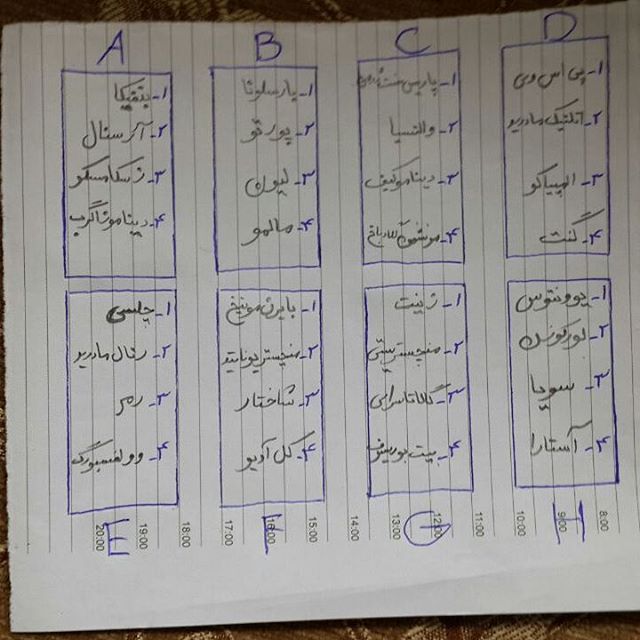 A
۱- بنفیکا
۲- آرسنال
۳- زسکامسکو
۴- دیناموزاگرب
B
۱- بارسلونا
۲- پورتو
۳- لیون
۴- مالمو
C
۱- پاریس سنت ژرمن
۲- والنسیا
۳- دیناموکیف
۴- مونشن گلادباخ
D
۱- پی اس وی
۲- اتلتیک مادرید
۳- المپیاکو
۴- گنت
۱- چلسی
۲- رئال مادرید
۳- رم
۴- وولفسبورگ
E
۱- بایرن مونیخ
۲- منچستر یونایتد
۳- شاختار
۴- گل آدیو
F
۱- زنیت
۲- منچستر سیتی
۳- گالاتاسرای
۴- بیت بوریسوف
G
۱- یوونتوس
۲- لورکوزن
۳- سویا
۴- آستارا
H
20:00
19:00
18:00
17:00
16:00
15:00
14:00
13:00
12:00
11:00
10:00
9:00
8:00